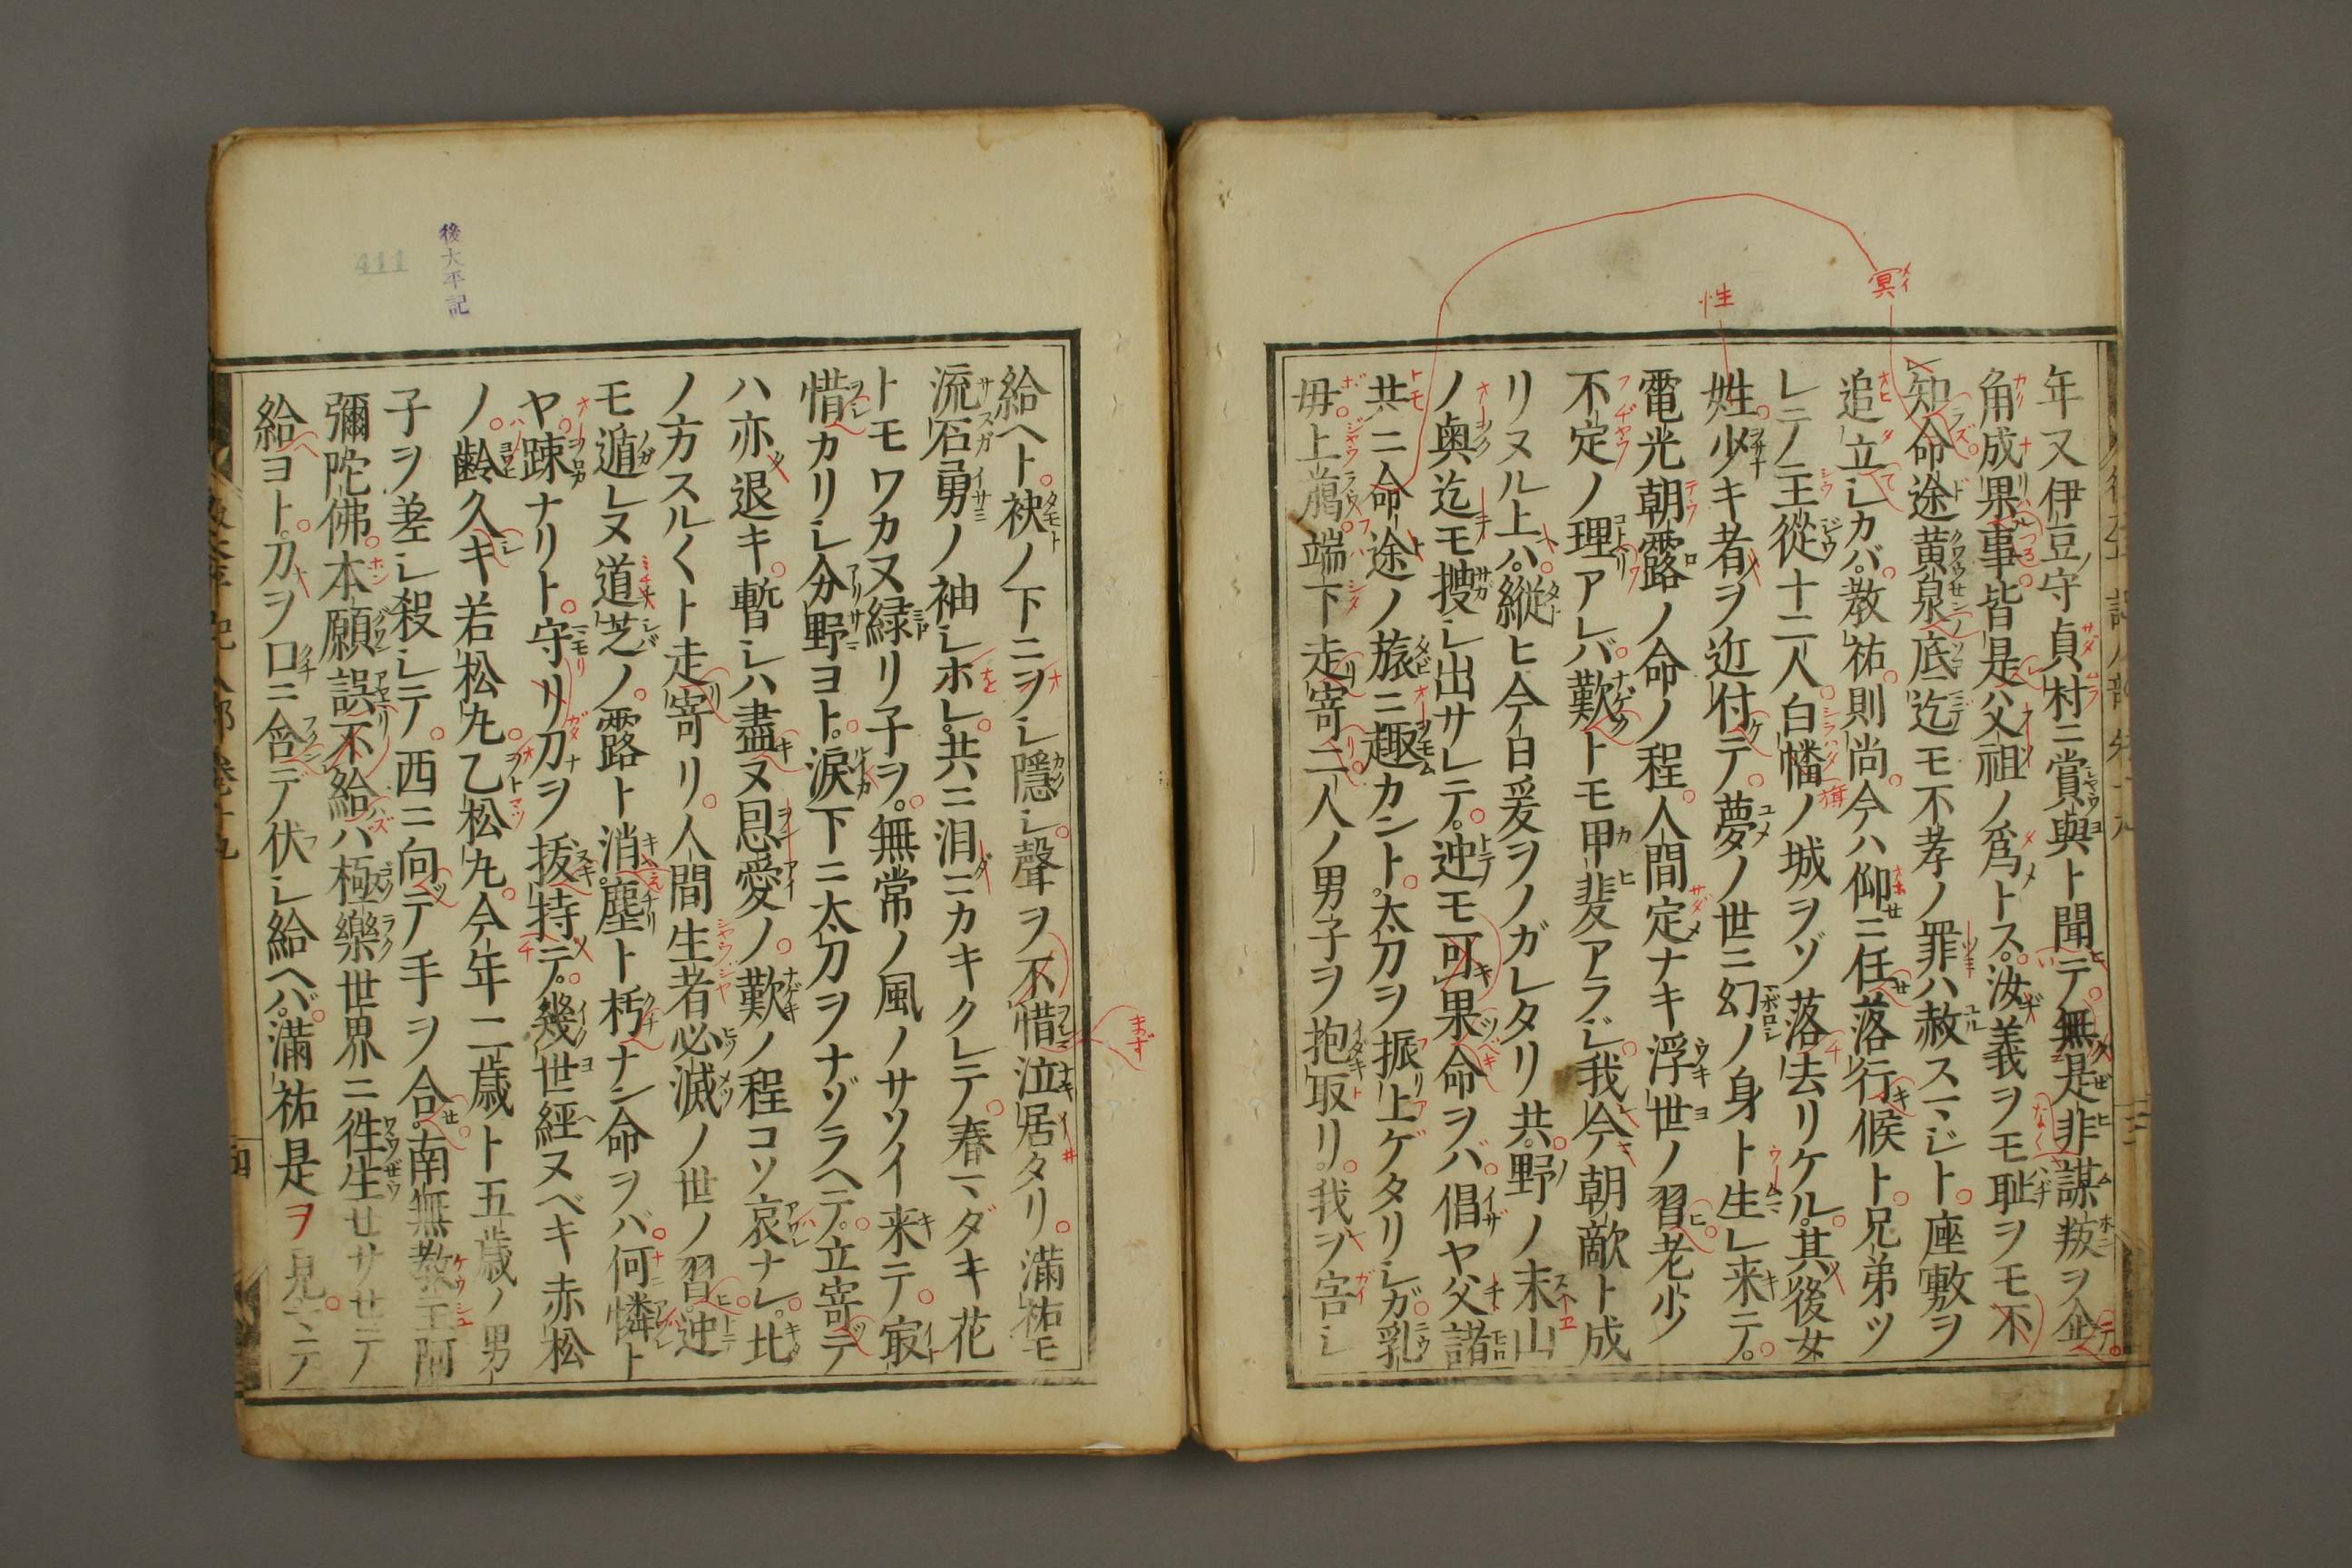 冥
性
年又伊豆ノ守貞村ニ賞與ト聞テ無是非謀叛ヲ企
角成果事皆是父祖ノ爲トス汝義ヲモ恥ヲモ不
知命途黄泉底迄モ不孝ノ罪ハ赦スマジト座敷ヲ
追立シカバ教祐則尚今ハ仰ニ任落行候ト兄弟ツ
レテノ主從十二人白幡ノ城ヲゾ落去リケル其後女
姓少キ者ヲ近付テ夢ノ世ニ幻ノ身ト生レ来テ
電光朝露ノ命ノ程人間定ナキ浮世ノ習老少
不定ノ理アレバ歎トモ甲斐アラジ我今朝敵ト成
リヌル上ハ縱ヒ今日爰ヲノガレタリ共野ノ末山
ノ奥迄モ捜シ出サレテ迚モ可果命ヲバ倡ヤ父諸
共ニ命途ノ旅ニ趣カント太刀ヲ振上ゲタリシガ乳
母上﨟端下走寄二人ノ男子ヲ抱取リ我ヲ害シ
給ヘト袂ノ下ニヲシ隱シ聲ヲ不惜泣居タリ滿祐モ
流石勇ノ袖シホレ共ニ泪ニカキクレテ春マダキ花
トモワカヌ緑リ子ヲ無常ノ風ノサソイ来テ㝡
惜カリシ分野ヨト涙下ニ太刀ヲナゾラヘテ立寄テ
ハ亦退キ暫シハ盡ヌ恩愛ノ歎ノ程コソ哀ナレ此
ノ方スルくト走寄リ人間生者必滅ノ世ノ習迚
モ遁レヌ道芝ノ露ト消塵ト朽ナン命ヲバ何憐ト
ヤ踈ナリト守リ刀ヲ抜持テ幾世經ヌベキ赤松
ノ齢久キ若松丸乙松丸今年二歳ト五歳ノ男
子ヲ差シ殺シテ西ニ向テ手ヲ合南無教主阿
彌陀佛本願誤不給ハ極樂世界ニ徃生セサセテ
給ヨト刀ヲ口ニ含デ伏シ給ヘバ滿祐是ヲ見マニテ
まず
後太平記
411